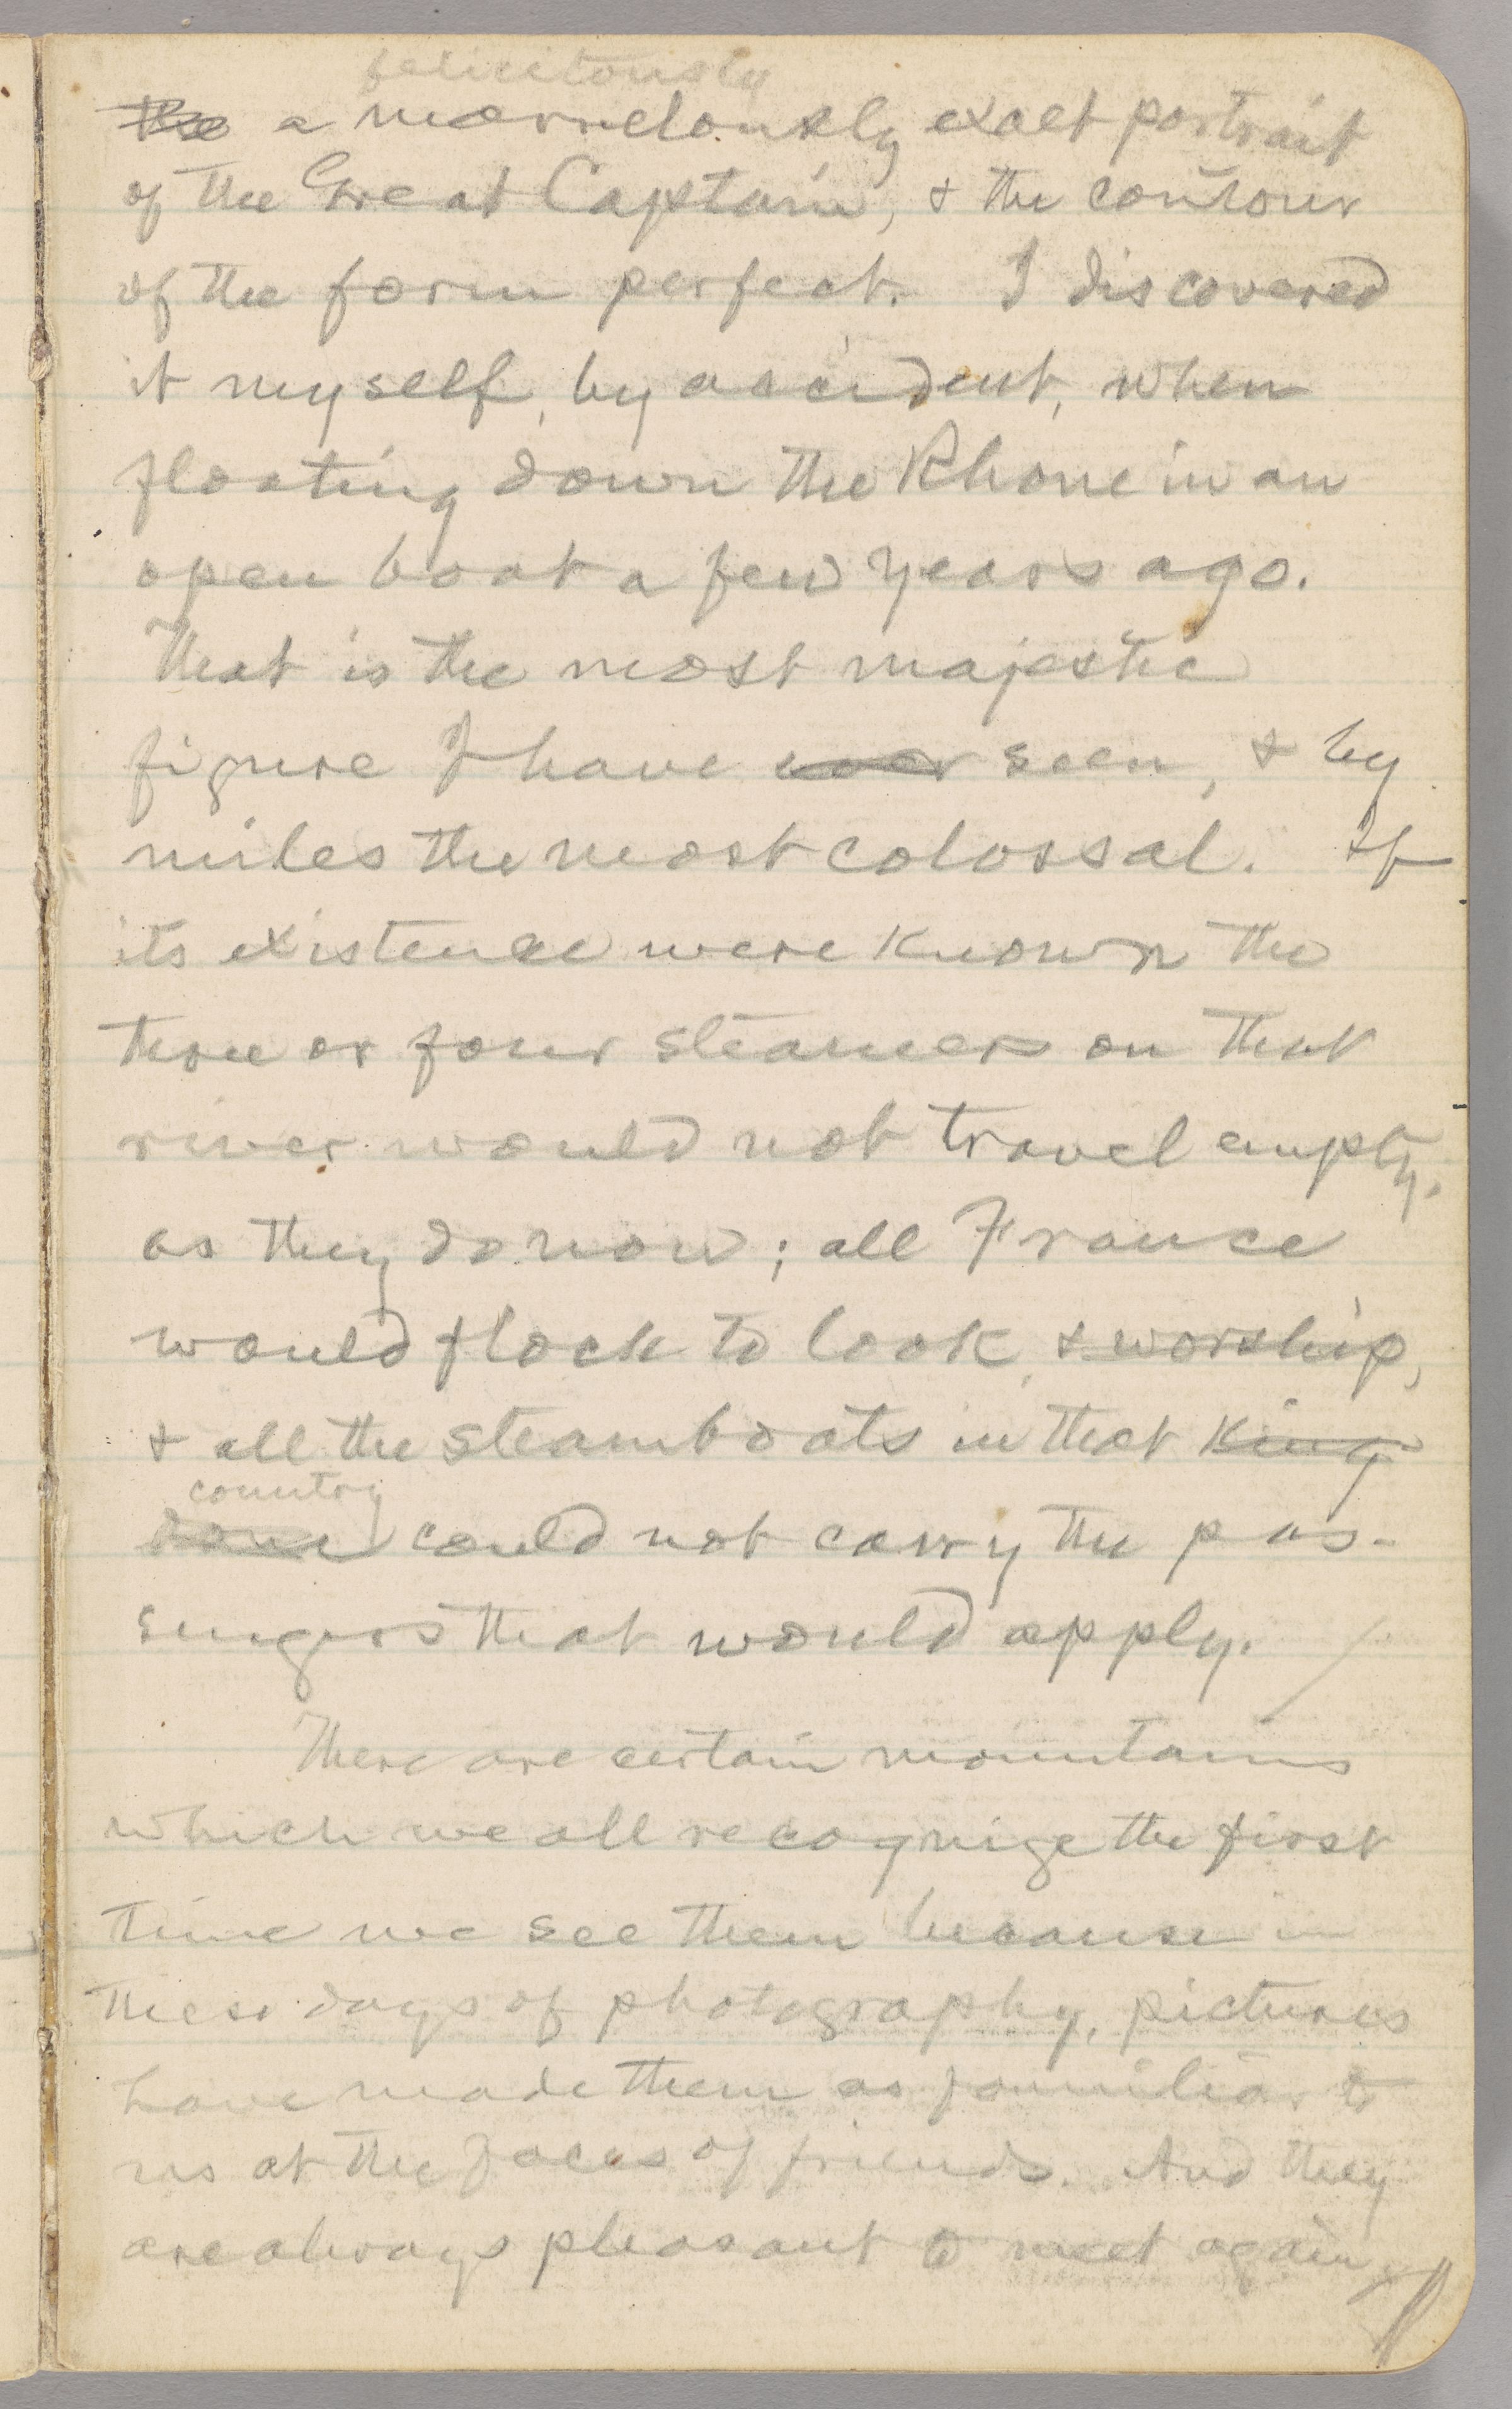 felicitously
The a marvelously exact portrait
of the Great Captain, & the contour
of the form perfect. I discovered
it myself, by accident, when
floating down the Rhone in an
open boat a few years ago.
That is the most majestic
figure I have ever seen, & by
miles the most colossal. If
its existence were known the
three or four steamers on that
river would not travel empty,
as they do now; all France
would flock to look, & worship,
& all the steamboats in that king
country
dom could not carry the pas-
sengers that would apply.
There are certain mountains
which we all recognize the first
time we see them because in
these days of photography, pictures
have made them as familiar to
us as the faces of friends. And they
are always pleasant to meet again,